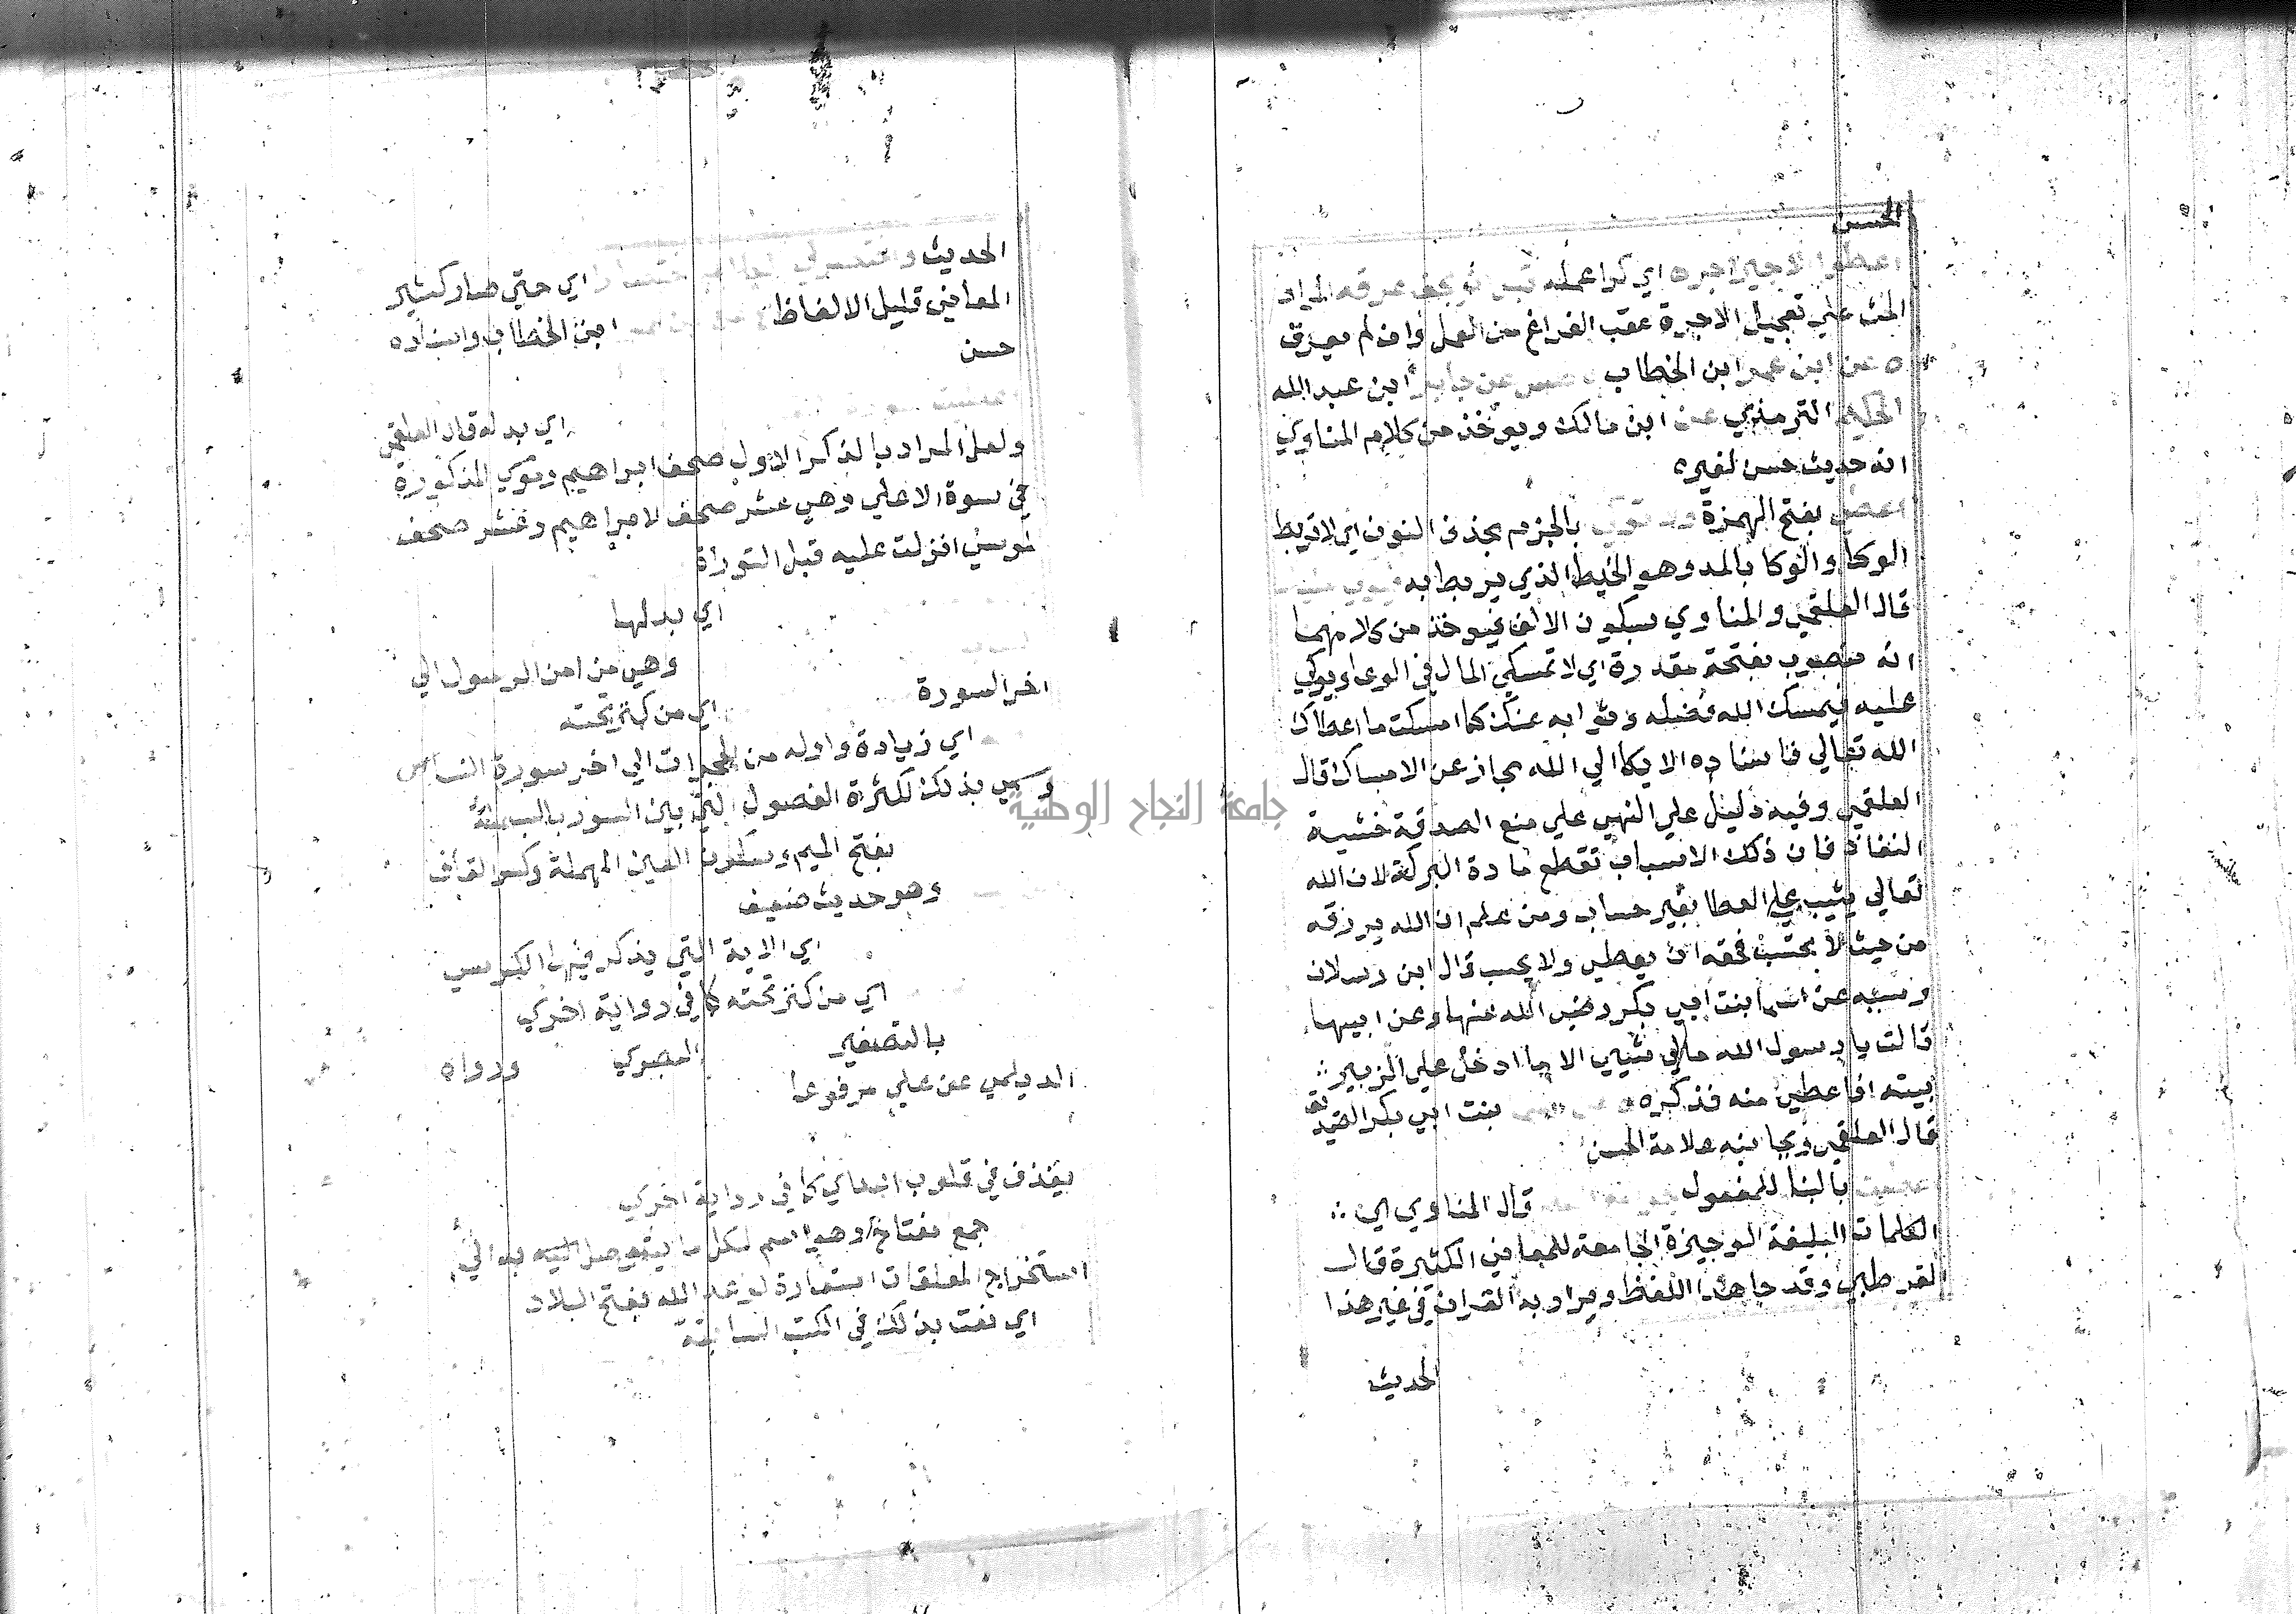 الحسن
اعطوا الاجير اجره اي كرا عمله قبل ان يجف عرقه المراد
الحث علي تعجيل الاجرة عقب الفراغ من العمل وان لم يعرق
ه عن ابن عمر ابن الخطاب عن جابر ابن عبد الله
الحكيم الترمذي عن ابن مالك ويوخذ من كلام المناوي
انه حديث حسن لغيره
اعطي بفتح الهمزة ولا توكي بالجزم بحذف النون اي لا تربط
الوكا والوكا بالمد وهو الخيط الذي يربط به
قال العلقمي والمناوي بسكون الالف فيوخذ من كلامهما
انه منصوب بفتحة مقدرة اي لا تمسكي المال في الوعا وتوكي
عليه فيمسك الله فضله وثوابه عنك كما امسكت ما اعطاك
الله تعالي فاسناده الايكا الي الله مجاز عن الامساك قال
العلقمي وفيه دليل علي النهي علي منع الصدقة خشية
النفاذ فان ذلك الاسباب تقطع مادة البركة لان الله
تعالي يثيب علي العطا بغير حساب ومن علم ان الله يرزقه
من حيث لا يحتسب فحقه ان يعطي ولا يحسب قال ابن رسلان
وسببه عن اسما بنت ابي بكر رضي الله عنها وعن ابيها
قالت يا رسول الله مالي شيي الا ما ادخل علي الزبير
بيته افاعطي منه فذكره بنت ابي بكر الصديق
قال العلقمي وبجانبه علامة الحسن
اعطيت بالبنا للمفعول قال المناوي اي
الكلمات البليغة الوجيزة الجامعة للمعاني الكثيرة قال
القرطبي وقد جا هذا اللفظ ويراد به القران في غير هذا
الحديث
الحديث واختصر لي اختصارا اي حتي صار كثير
المعاني قليل الالفاظ ابن الخطاب واسناده
حسن
اي بدله قال العلقمي
ولعل المراد بالذكر الاول صحف ابراهيم وموي المذكورة
في سوة الاعلي وهي عشر صحف لابراهيم وعشر صحف
لموسي انزلت عليه قبل التوراة
اي بدلها
وهي من امن الرسول الي
اخر السورة
اي من كنز تحته
اي زيادة واوله من الحجرات الي اخر سورة الناس
وسمي بذلك لكثرة الفصول التي بين السور بالبسملة
بفتح الميم وسكون العين المهملة وكسر القاف
وهو حديث ضعيف
اي الاية التي يذكر فيها الكرسي
اي من كنز تحته كما في رواية اخري
بالتصغير
البصري ورواه
الديلمي عن علي مرفوعا
يقذف في قلوب اعداي كما في رواية اخري
جمع مفتاح وهو اسم لكل ما يتوصل اليه به الي
استخراج المغلقات استعارة لوعد الله بفتح البلاد
اي نعت بذلك في الكتب السابقة
جامعة النجاح الوطنية